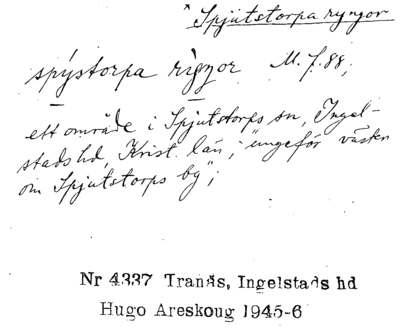 * Spjutstorpa ryngor
spýstorpa rigŋor M. f. 88,
ett område i Spjutstorps sn, Ingel-
stads hd, Krist. län; "ungefär väster
om Spjutstorps by";
Nr 4337 Tranås, Ingelstads hd
Hugo Areskoug 1945-6